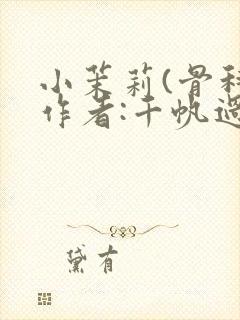 小茉莉(骨科
作者:千帆過
黛有